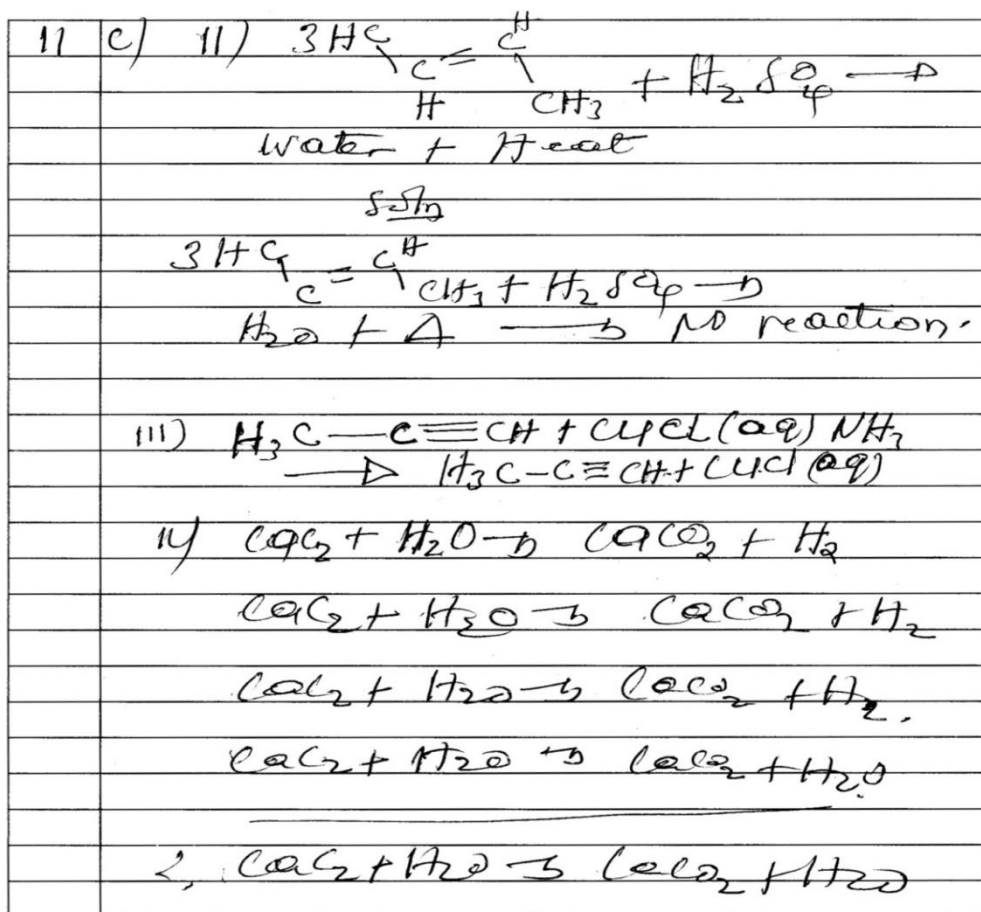 11 c) 11) 3HC C = C H
H CH3 + H2SO4 →
Water + Heat
Soln
3HC C = C H CH3 + H2SO4 →
H2O + Δ → No reaction.
111) H3C — C ≡ CH + CuCl (aq) NH3
→ H3C - C ≡ CH + CuCl (aq)
iv) CaC2 + H2O → CaCO2 + H2
CaC2 + H2O → CaCO2 + H2
CaC2 + H2O → CaCO2 + H2.
CaC2 + H2O → CaCO2 + H2O
2, CaC2 + H2O → CaCO2 + H2O